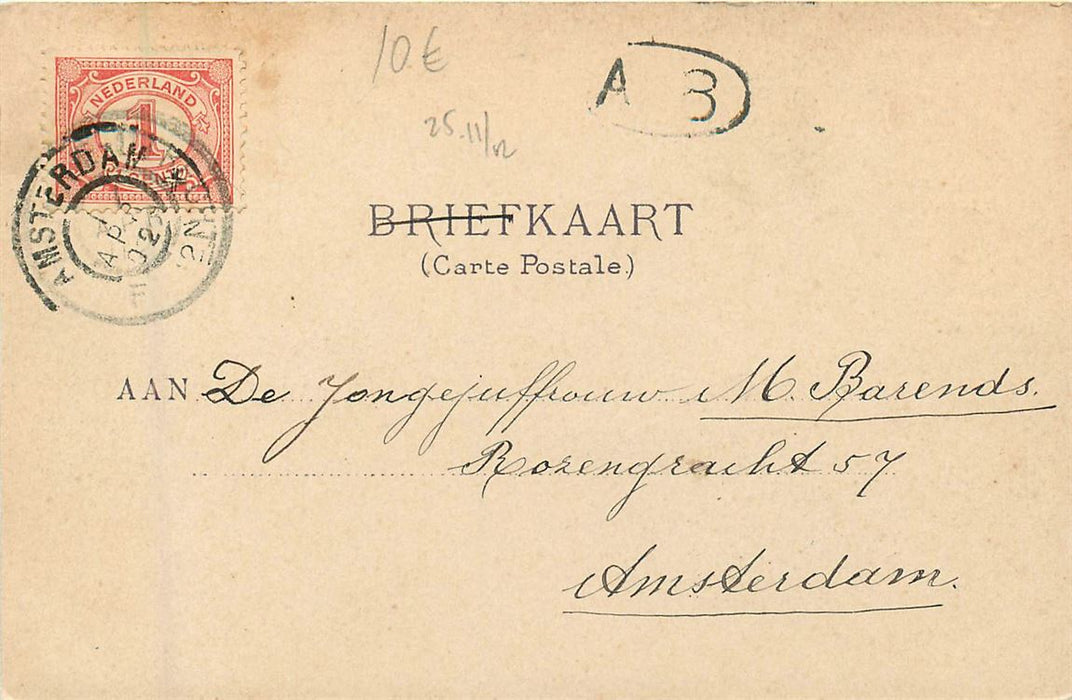 10 €
25.11/02
A 3
NEDERLAND
1
AMSTERDAM
APR
02
BRIEFKAART
(Carte Postale.)
AAN De Jongejuffrouw M. Barends.
Rozengracht 57
Amsterdam.